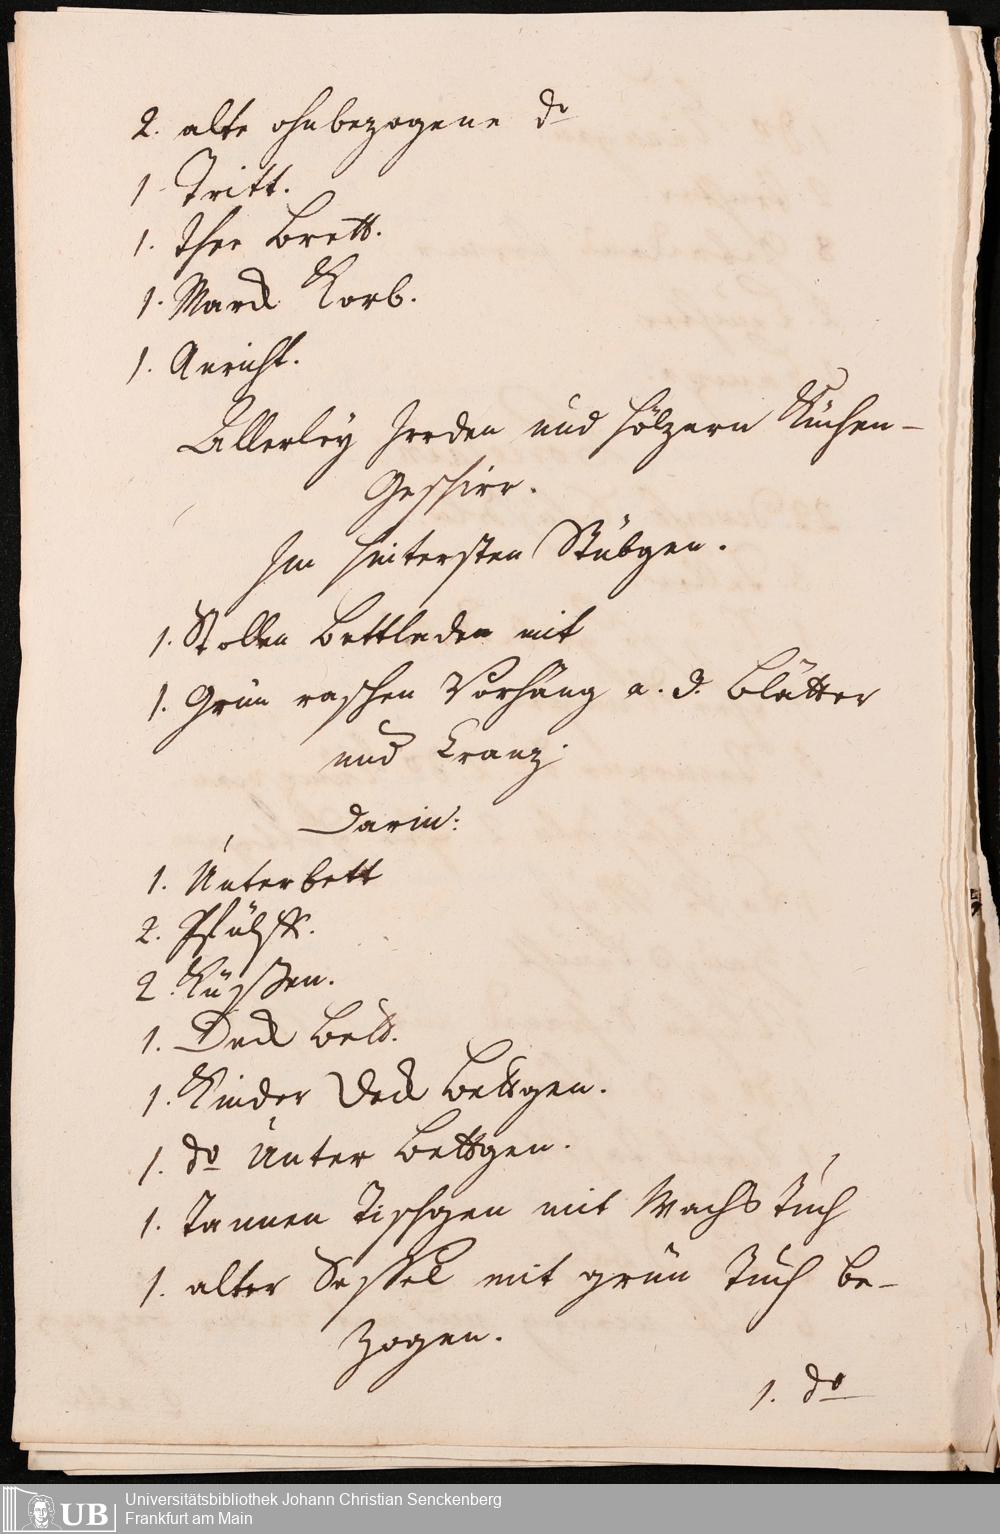 2. alte ohnbezogene do
1 Tritt.
1. Thee Brett.
1. Marck Korb.
1. Anricht.
Allerley Irrden und hölzern Küchen-
Geschirr.
Im hintersten Stübgen.
1. Stollen Bettladen mit
1. Grün raschen Vorhäng a. 3. Blätter
und Cranz;
Darin:
1. Unterbett
2. Pfülfft.
2. Küssen.
1. Deck Bett.
1. Kinder Deck Bettgen.
1. do Unter Bettgen.
1. Tannen Tischgen mit Wachs Tuch
1. alter Sessel mit grün Tuch be-
zogen.
1. do
UB Universitätsbibliothek Johann Christian Senckenberg
Frankfurt am Main